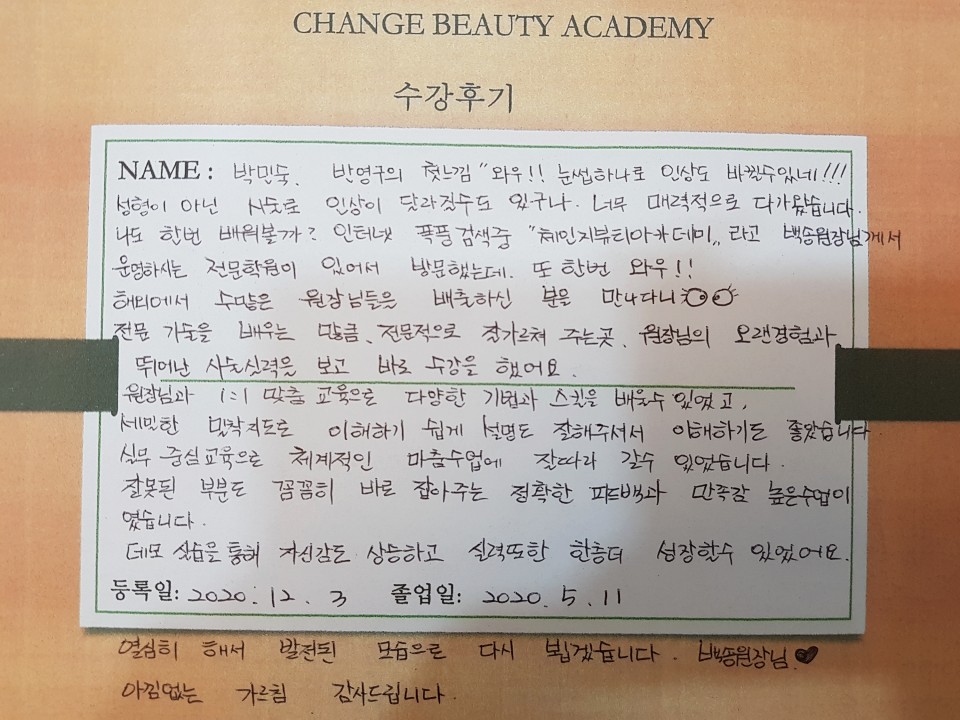 CHANGE BEAUTY ACADEMY
수강후기
NAME : 박민숙. 반영구의 첫느낌 "와우!! 눈썹하나로 인상도 바뀔수있네!!!
성형이 아닌 시술로 인상이 달라질수도 있구나. 너무 매력적으로 다가왔습니다.
나도 한번 배워볼까? 인터넷 폭풍검색중 "체인지뷰티아카데미" 라고 백송원장님께서
운영하시는 전문학원이 있어서 방문했는데. 또 한번 와우!!
해외에서 수많은 원장님들을 배출하신 분을 만나다니
전문 기술을 배우는 만큼, 전문적으로 잘가르쳐 주는곳. 원장님의 오랜경험과
뛰어난 시술실력을 보고 바로 수강을 했어요.
원장님과 1:1 맞춤 교육으로 다양한 기법과 스킬을 배울수 있었고,
세밀한 밀착지도로 이해하기 쉽게 설명도 잘해주셔서 이해하기도 좋았습니다
실무 중심교육으로 체계적인 마춤수업에 잘따라 갈수 있었습니다.
잘못된 부분도 꼼꼼히 바로 잡아주는 정확한 피드백과 만족감 높은수업이
였습니다.
데모 실습을 통해 자신감도 상승하고 실력또한 한층더 성장할수 있었어요.
등록일: 2020. 12. 3 졸업일: 2020. 5. 11
열심히 해서 발전된 모습으로 다시 뵙겠습니다. 백송원장님♥
아낌없는 가르침 감사드립니다.